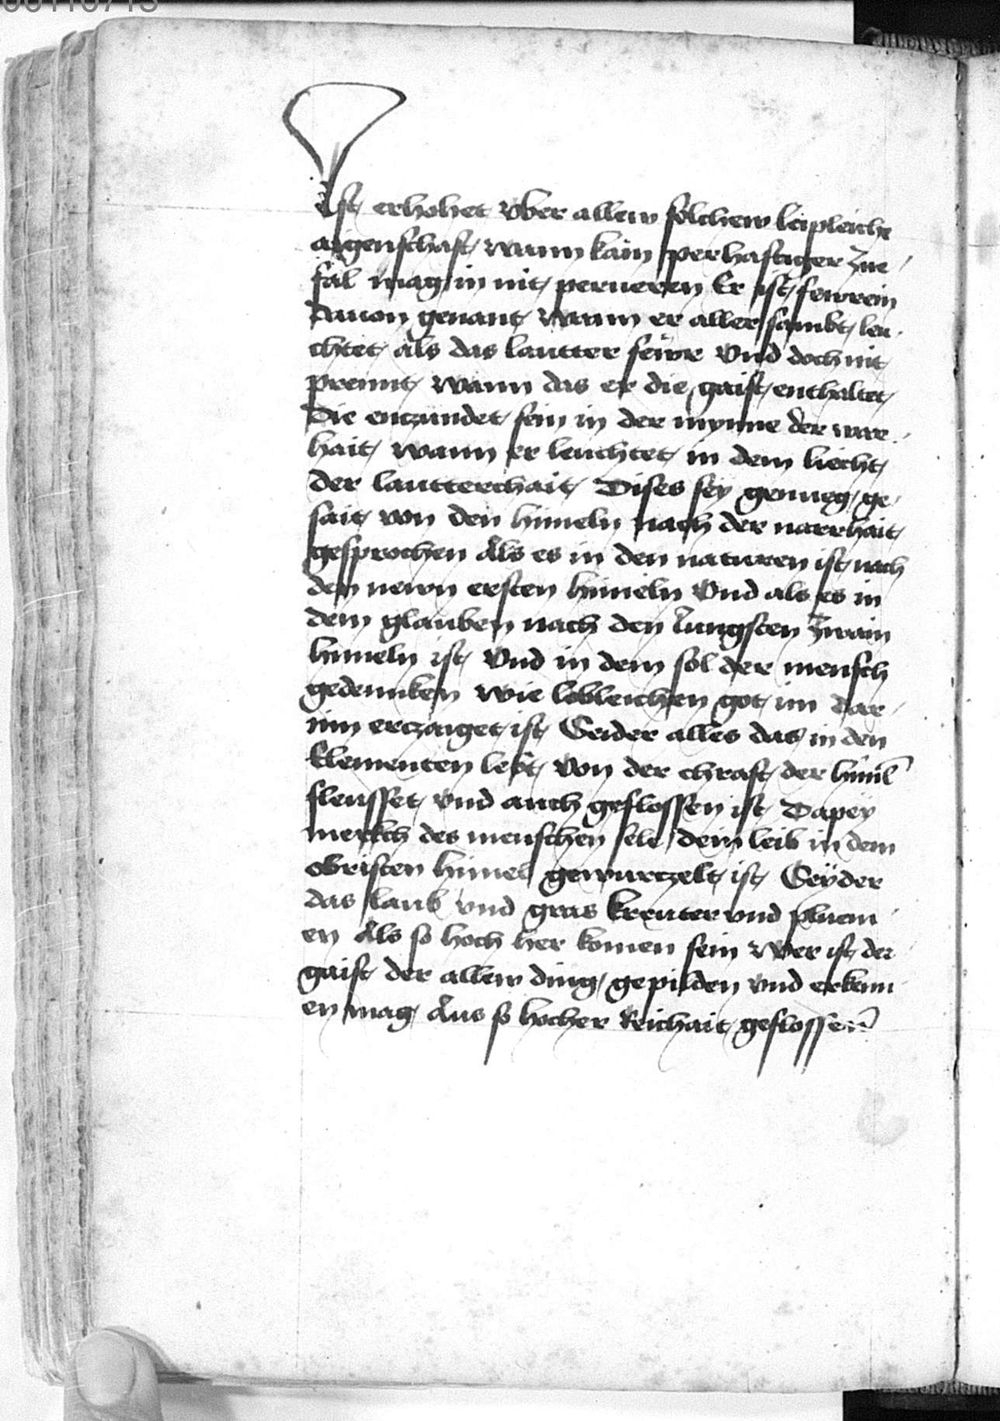 Ist erhohet vber allew sölchew leipleiche
aigenschaft wann kain perhaftiger zue
fal mag in nit perueren Er ist fewrein
dauon genant wann er aller sambt leu
chtet als das lautter fewr vnd doch nit
prennt wann das er die gaist enthaltet
die enczundet sein in der mynne der war
hait wann er leuchtet in dem liecht
der lautterchait Dises sey genueg ge
sait von den himeln nach der warhait
gesprochen Als es in den naturen ist nach
den newn ersten himeln vnd als es in
dem glauben nach den Iungsten zwain
himeln ist vnd in dem sol der mensch
gedenncken wie lobleichen got im dar
inn erczaiget ist Seider alles das in den
Elementen lebt von der chraft der himel
fleusset vnd auch geflossen ist Dapey
merkch des menschen sele dein leib in dem
obristen himel gewurczelt ist Seyder
das laub vnd gras kreuter vnd pluem
en Als so hoch her komen sein wer ist der
gaist der allew ding gepilden vnd erkenn
en mag Aus so hocher Reichait geflossen